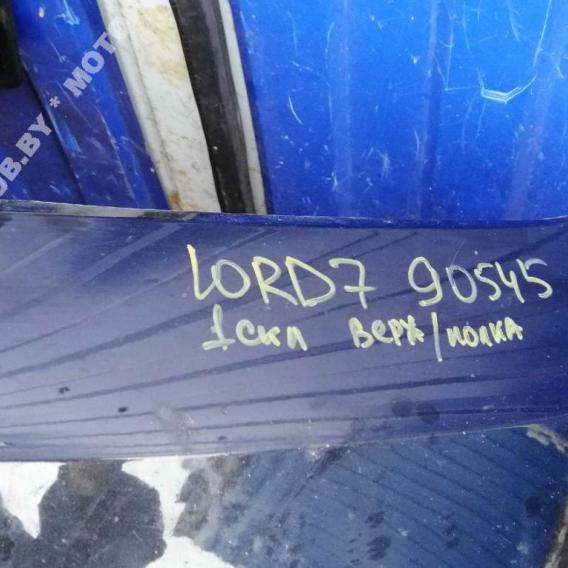 OB.BY * MOTO
LORD7 90545
1 скл верх/полка